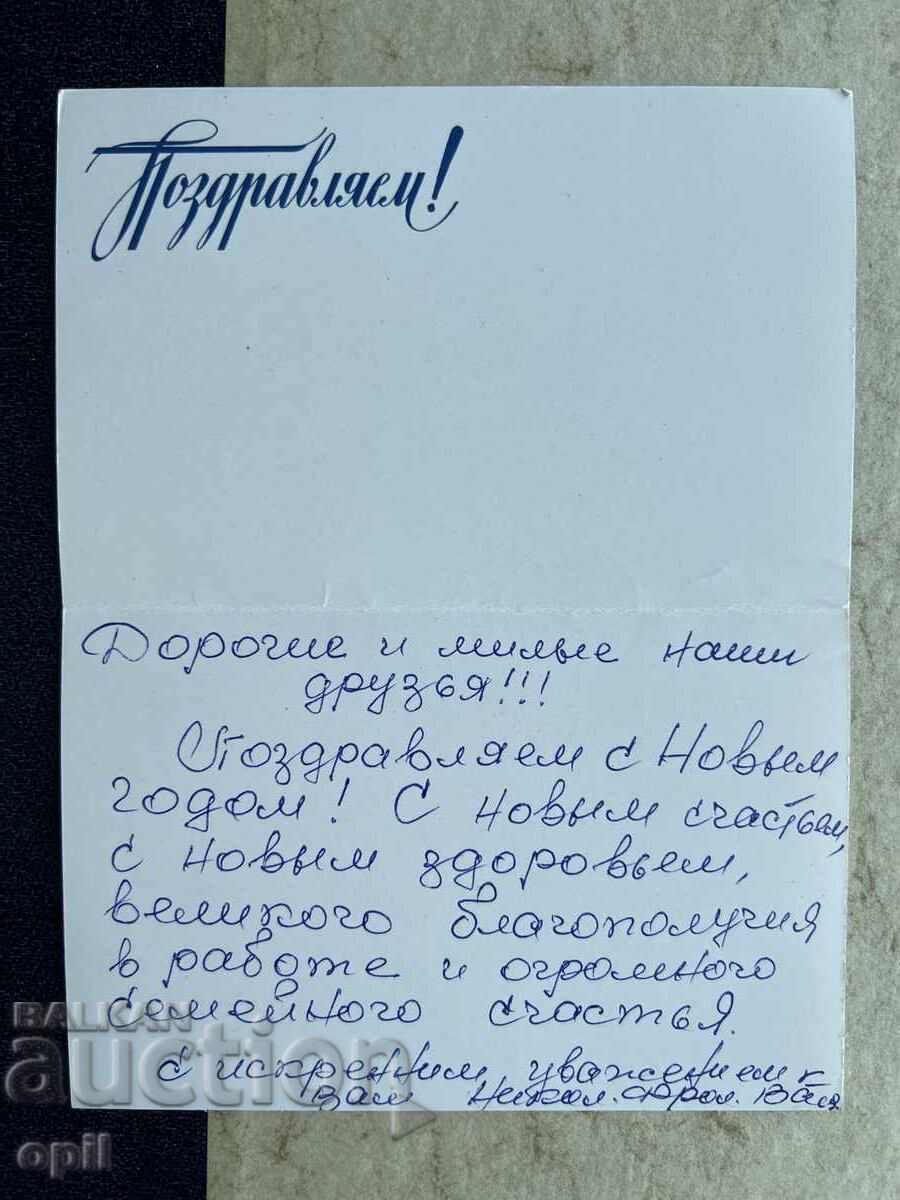 Поздравляем!
Дорогие и милые наши
друзья!!!
Поздравляем с Новым
годом! С новым счастьем,
с новым здоровьем,
великого благополучия
в работе и огромного
семейного счастья.
С искренним уважением к
Вам Никол. Фрол.
BALKAN
auction
opil